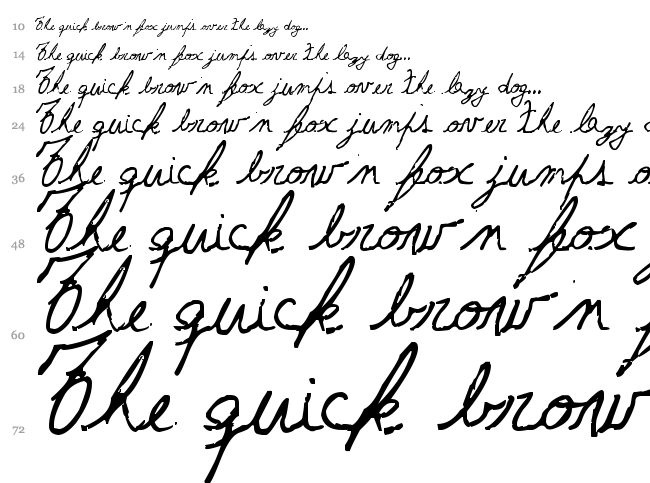 10 The quick brown fox jumps over the lazy dog...
14 The quick brown fox jumps over the lazy dog...
18 The quick brown fox jumps over the lazy dog...
24 The quick brown fox jumps over the lazy d
36 The quick brown fox jumps o
48 The quick brown fox j
60 The quick brown f
72 The quick brow